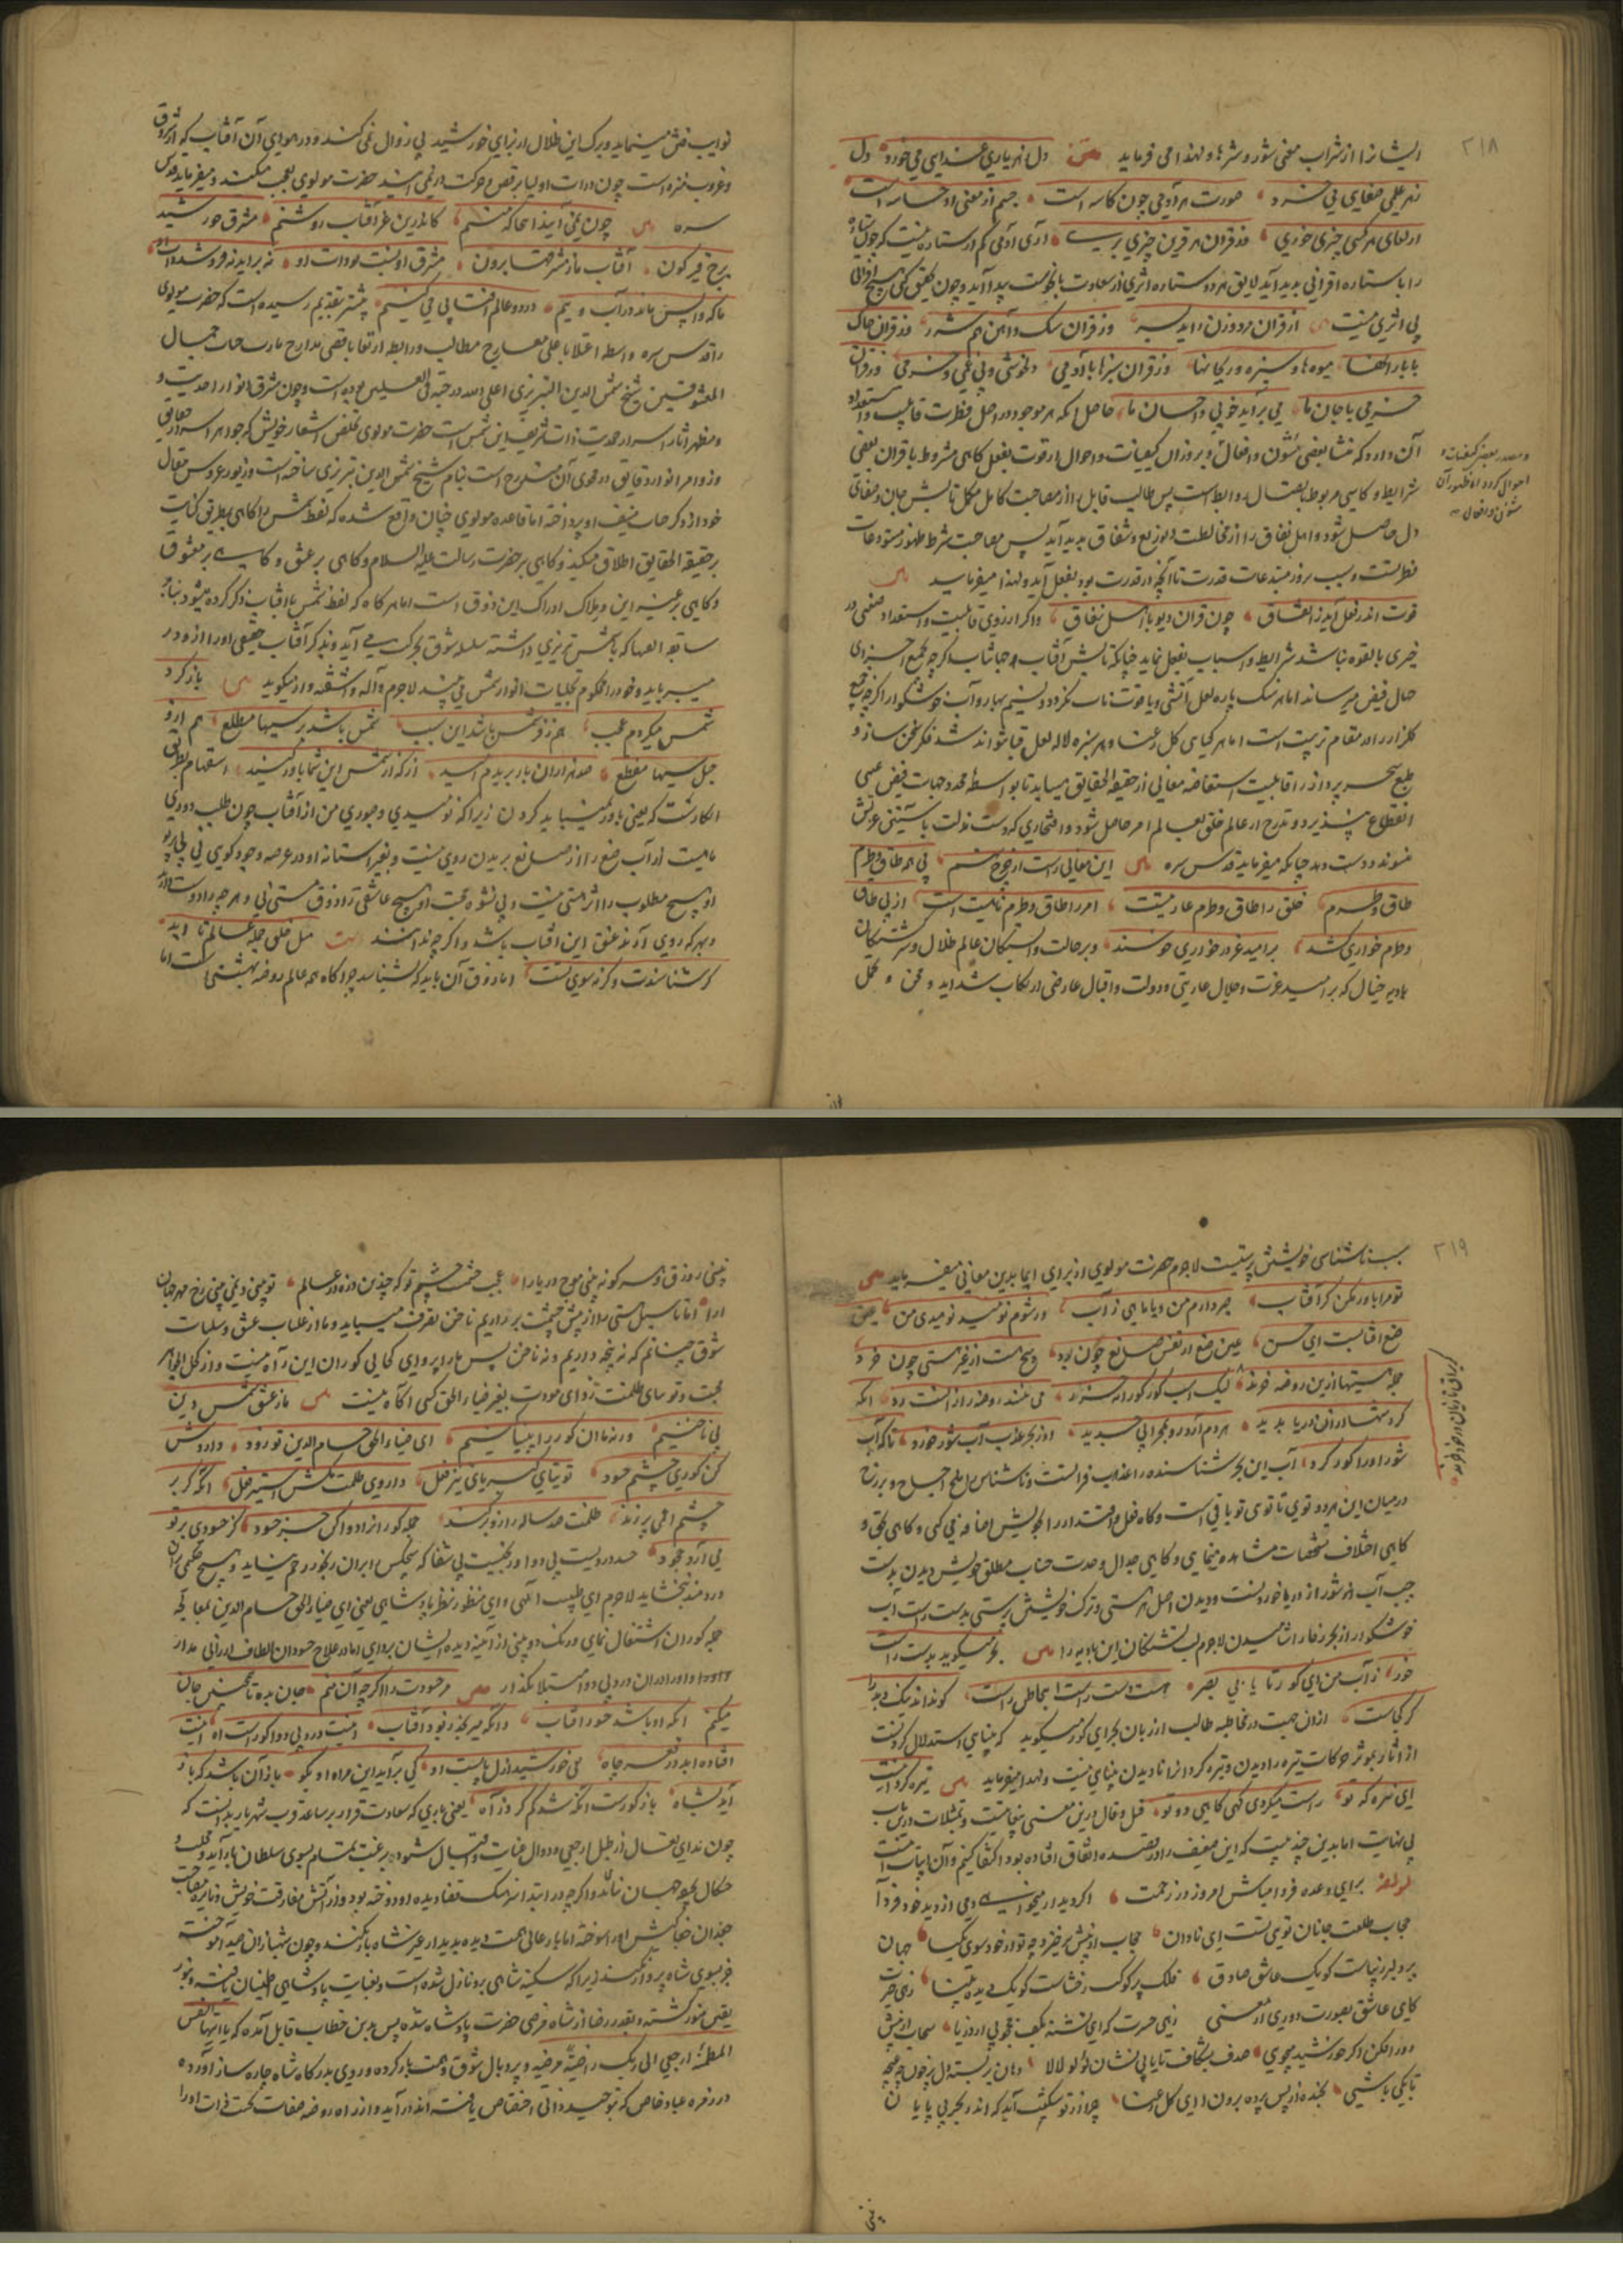 ۲۱۸
ایشانرا از شراب معنی شور و شرها و لهذا می فرماید دل ز هر یاری غذایی می خورد دل
ز هر علمی صفایی می برد صورت هر آدمی چون کاسه است چشم از معنی او حساسه است
از لقای هر کسی چیزی خوری وز قران هر قرین چیزی بری آری آدمی کم از ستاره نیست که چون ستاره
را با ستاره اقترانی پدید آید لایق هر دو ستاره اثری از سعادت یا نحوست پیدا آید
بی اثری نیست از قران مرد و زن زاید بشر وز قران سنگ و آهن هم شرر وز قران خاک
با بارانها میوه ها و سبزه و ریحانها وز قران سبزها با آدمی دلخوشی و بی غمی و خرمی وز قران
خرمی با جان ما می برآید خوبی و احسان ما حاصل آنکه هر موجود در اصل فطرت قابلیت و استعداد
آن دارد که منشأ بعضی شئون و افعال و بروز آن کیفیات و احوال از قوت بفعل گاهی مشروط باقران بعضی
شرایط و گاهی مربوط باتصال روابط است پس طالب قابل را از مصاحبت کامل مکمل تابش جان و صفای
دل حاصل شود و اهل نفاق را از مخالطت شقاق پدید آید پس مصاحبت شرط ظهور مستودعات
فطرتست و سبب بروز مبتدعات قدرت تا آنچه در قدرت بود بفعل آید و لهذا میفرماید
قوت اندر فعل آید ز اتفاق چون قران دیو با اهل نفاق و اگر از روی قابلیت و استعداد
چیزی بالقوه نباشد شرایط و اسباب بفعل نیاید چنانکه تابش آفتاب جهانتاب اگرچه بجمیع اجزای
جبال فیض میرساند اما هر سنگ پاره لعل آتشی و یاقوت ناب نگردد و نسیم بهار و آب خوشگوار اگرچه جمیع
گلزار را در مقام تربیت است اما هر گیاهی گل رعنا و هر سبزه لاله لعل قبا نتواند شد فکر سخن ساز و
طبع سحر پرداز را قابلیت استفاضه معانی از حقیقة الحقایق میباید تا بواسطه جهات فیض غیبی
انقطاع پذیرد و بتدرج از عالم خلق بعالم امر حاصل شود و
دست دهد چنانکه میفرماید قدس سره این معانی راست از چرخ نهم بی همه طاق و طرم
طاق و طرم خلق را طاق و طرم عاریتست امر را طاق و طرم ماهیتست از پی طاق
و طرم خواری کشند بر امید عز در خواری خوشند و بر حالت وابستگان عالم ظلال و سرگشتگان
بادیه خیال که بر امید عزت و جلال عاریتی و دولت و اقبال عارضی ارتکاب شداید و محن و تحمل
و مصدر بعضی کیفیات و
احوال گردد اما ظهور آن
شئون و افعال
نوایب فتن مینمایند و ترک این ظلال از برای خورشید بی زوال نمی کنند و در هوای آن آفتاب که از شروق
و غروب منزه است چون ذرات اولیا برقص و حرکت در نمی آیند حضرت مولوی تعجب میکنند و میفرماید قدس
سره چون نمی آیند اینجا که منم کاندرین عز آفتاب روشنم مشرق خورشید
برج قیرگون آفتاب ما ز مشرقها برون مشرق او نسبت ذرات او نه برآمد نه فرو شد ذات او
ما که واپس مانده ذرات ویم در دو عالم آفتابی بی فییم بیشتر بتقدیم رسیده است که حضرت مولوی
را قدس سره واسطه اعتلا باعلی معارج مطالب و رابطه ارتقا باقصی مدارج مآرب صاحب جمال
المعشوقین شیخ شمس الدین التبریزی اعلی الله درجته فی العلیین بوده است و چون مشرق انوار احدیت و
مظهر آثار اسرار صمدیت ذات شریف این شمس است حضرت مولوی تخلص اشعار خویش که جواهر اسرار حقایق
و زواهر انوار دقایق در فحوی آن مندرج است بنام شیخ شمس الدین تبریزی ساخته است و زیور عروس مقال
خود از ذکر جناب منیف او پرداخته اما قاعده مولوی چنان واقع شده که لفظ شمس را گاهی بطریق کنایت
بر حقیقة الحقایق اطلاق میکند و گاهی بر حضرت رسالت علیه السلام و گاهی بر عشق و گاهی بر معشوق
و گاهی بر غیر این و ملاک ادراک این ذوق است اما هر گاه که لفظ شمس یا آفتاب ذکر کرده میشود بنابر
سابقه آنها که با شمس تبریزی داشته سلسله شوق بحرکت می آید و ذکر آفتاب حقیقی او را از خود در
میرباید و خود را محکوم تجلیات انوار شمس می بیند لاجرم واله و آشفته وار میگوید باز گرد
شمس میگردم عجب هم ز فر شمس باشد این سبب شمس باشد بر سببها مطلع هم ازو
حبل سببها منقطع صد هزاران بار ببریدم امید از که از شمس این شما باور کنید استفهام بطریق
انکارست که یعنی باور نمیباید کردن زیرا که نومیدی و صبوری من از آفتاب چون طلب دوری
ماهیست از آب صنع را از صانع بریدن روی نیست و بغیر آستانه او در عرصه وجود کوی نی بی پرتو
او هیچ مطلوب را اثر هستی نیست و بی نشوه محبت او هیچ عاشقی را ذوق مستی نی و هر چه را دوست دارند
و بهر که روی آرند عشق این آفتاب باشد و اگر چه ندانند میل خلق جمله عالم تا ابد
گر شناسندت و گرنه سوی تست اما ذوق آن یابد که بشناسد چراگاه همه عالم روضه هستی است اما
۲۱۹
بسر ناشناسی خویش پرستیست لاجرم حضرت مولوی از برای ایما بدین معانی میفرماید
تو مرا باور مکن کز آفتاب صبر دارم من و یا ماهی ز آب ور شوم نومید نومیدی من عین
صنع آفتابست ای حسن عین صنع از نفس صانع چون برد هیچ هست از غیر هستی چون خرد
جمله هستیها ازین روضه خورند لیک اسب کور کورانه خورند می نبیند روضه را زانست رد آنکه
گردشها از آن دریا ندید هر دم آرد رو بمحرابی جدید او ز بحر عذب آب شور خورد تا که آب
شور او را کور کرد آب این بحر شناسنده را عذب فراتست و ناشناس را ملح اجاج و برزخ
در میان این هر دو توی تا توی تو باقی است و گاه فعل و اقتدار را بخویش اضافه نمی کنی و گاهی بحق و
گاهی اختلاف تشخصات مشاهده مینمایی و گاهی جمال وحدت جناب مطلق خویش دیدن بدست
چپ آب شور از دریا خوردنست و دیدن اصل هر هستی و ترک خویشتن پرستی بدست راست آب
خوشگوار از بحر زخار آشامیدن لاجرم لب تشنگان این بادیه را بحر میگوید بدست راست
خور ز آب من ای کور تا یابی بصر هست دست راست اینجا ظن راست کو بداند نیک و بد را
کز کجاست از آن جهت در مخاطبه طالب از زبان بحر ای کور میگوید که بینایی استدلال کردنست
از آثار بموثر حرکات نیزه را دیدن و نیزه گردان را نادیدن بینایی نیست و لهذا میفرماید نیزه گردانیست
ای نیزه که تو راست میگردی گهی گاهی دوتو قیل و قال درین معنی بیغایتست و تمثیلات درین باب
بی نهایت اما بدین چند بیت که این ضعیف را در قصیده اتفاق افتاده بود اکتفا کنیم و آن ابیات اینست
لمولفه برای وعده فردا مباش امروز در زحمت اگر دیدار میخواهی دمی از دید خود فردا
حجاب طلعت جانان تویی تست ای نادان حجاب از پیش برخیزد چو تو از خود شوی یکتا جهان
پر دلبر زیباست کو یک عاشق صادق فلک پر کوکب رخشاست کو یک دیده بینا زهی حیرت
که ای عاشق بصورت دوری از معنی زهی حسرت که ای تشنه بکف محجوبی از دریا سحاب از پیش
دور افکن اگر خورشید میجویی صدف بشکاف تا یابی نشان لؤلؤ لالا دهان بربسته دل پرخون چو غنچه
تا بکی باشی بخنده از پس پرده برون آ ای گل رعنا چو از تو شکیب آید که اندر بحر بی پایان
کورانی با زبان از خود خورند
نبینی از ذوق سرگونه نه بینی موج دریا را عجب چشمی تو که چندین در دو عالم تو بینی و نمی بینی رخ مهر جهان
آرا اما تا سبل هستی را از پیش چشمت برداریم ناخن تصرف میباید و ما از غلبات عشق و سلبات
شوق چنانیم که نه پنجه داریم و نه ناخن پس ما را پروای کحالی کوران این راه نیست و از کحل الجواهر
محبت و توتیای ظلمت زدای مودت بغیر ضیاء الحق کسی آگاه نیست ما ز عشق شمس دین
بی ناخنیم ورنه ما آن کور را بینا کنیم ای ضیاء الحق حسام الدین تو زود داروش
کن کوری چشم حسود توتیای کبریای تیز فعل داروی ظلمت کش استیز فعل آنکه گر بر
چشم اعمی بر زند ظلمت صد ساله را زو بر کند جمله کوران را دوا کن جز حسود کز حسودی بر تو
می آرد جحود حسد دردیست بی دوا و رنجیست بی شفا که هیچکس بر آن رنجور رحم ننماید و هیچ حکیمی بر آن
دردمند نبخشاید لاجرم ای طبیب الهی و ای منظور نظر پادشاهی یعنی ای ضیاء الحق حسام الدین بمعالجه
جمله کوران اشتغال نمای و رنگ دوبینی از آینه دیده ایشان بزدای اما در علاج حسودان الطاف ارزانی مدار
و او را در آن درد بی دوا مبتلا بگذار مر حسودت را اگر چه آن منم جان مده تا همچنین جان
میکنم آنکه او باشد حسود آفتاب وانکه میرنجد ز بود آفتاب اینت درد بی دوا کوراست آه اینت
افتاده ابد در قعر چاه نفی خورشید ازل بایست او کی برآید این مراد او بگو باز آن باشد که باز
آید بشاه باز کورست آنکه شد گم کرد راه یعنی بازی که سعادت قرار بر ساعد قرب شهریار یافته است که
چون ندای تعال از طبل ارجعی و دوال عنایت و اقبال شنود برغبت تمام بسوی سلطان باز آید و
مثال جهان نماند و اگر چه در ابتدا سهمگ تضا دیده او دوخته بود و در آتش مفارقت خویش
چندان جناحش او را سوخته اما باز عالی همت دیده بدیدار غیر شاه باز نکند و چون شهبازان صید آموخته
جز بسوی شاه پرواز نکند زیرا که سکینه شاهی برو نازل شده است و بعنایت پادشاهی اطمینان یافته و بنور
یقین منور گشته و بقدر رضا از شاه مرضی حضرت پادشاه شده پس بدین خطاب قابل آمده که یا ایتها النفس
المطمئنة ارجعی الی ربک راضیة مرضیة و پر و بال شوق و همت باز کرده و روی بدرگاه شاه چاره ساز آورده
در زمره عباد خاص که بتوحید ذاتی اختصاص یافته اند در آید و از راه روضه صفات بجنت ذات او را